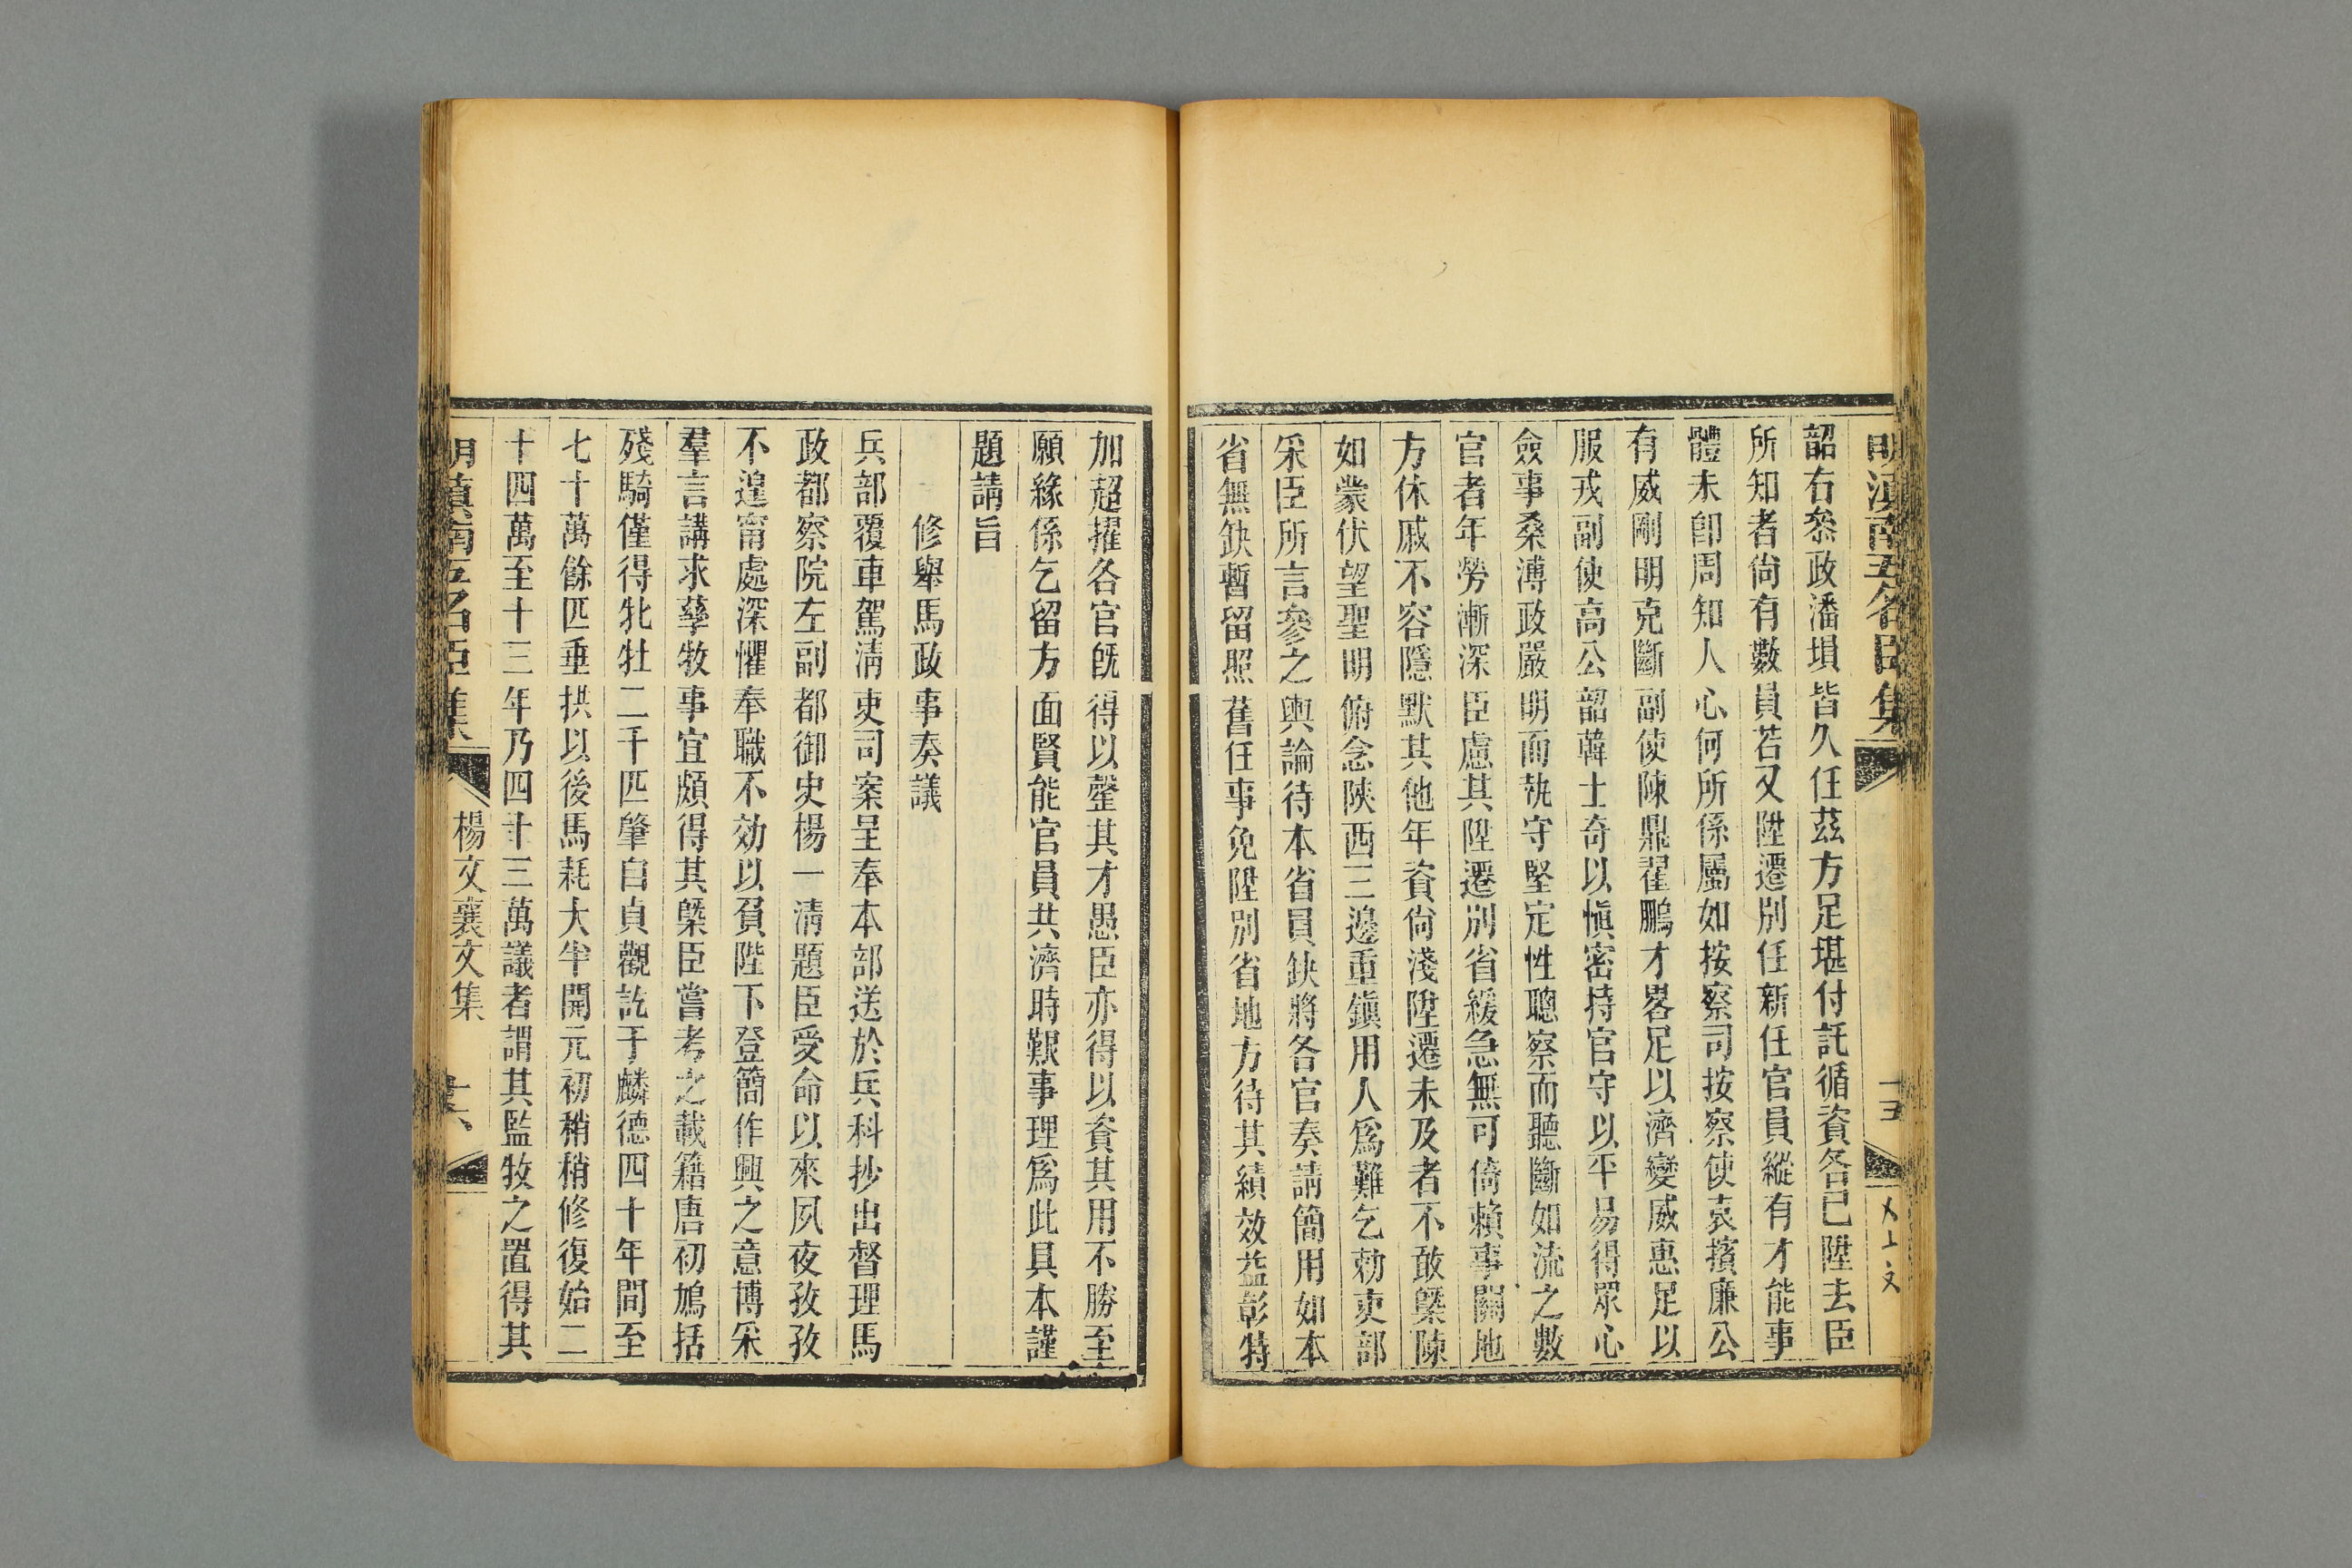 明滇南五名臣集
韶右叅政潘塤皆久任茲方足堪付託循資各已陞去臣
所知者尙有數員若又陞遷別任新任官員縱有才能事
體未卽周知人心何所係屬如按察司按察使袁擯廉公
有威剛明克斷副使陳鼎翟鵬才畧足以濟變威惠足以
服戎副使高公韶韓士奇以愼密持官守以平易得眾心
僉事桑溥政嚴明而執守堅定性聰察而聽斷如流之數
官者年勞漸深臣慮其陞遷別省緩急無可倚賴事關地
方休戚不容隱默其他年資尙淺陞遷未及者不敢槩陳
如蒙伏望聖明俯念陝西三邊重鎭用人爲難乞勅吏部
采臣所言參之輿論待本省員缺將各官奏請簡用如本
省無缺暫留照舊任事免陞別省地方待其績效益彰特
加超擢各官旣得以罄其才愚臣亦得以資其用不勝至
願緣係乞留方面賢能官員共濟時艱事理爲此具本謹
題請旨
修舉馬政事奏議
兵部覆車駕淸吏司案呈奉本部送於兵科抄出督理馬
政都察院左副都御史楊一淸題臣受命以來夙夜孜孜
不遑甯處深懼奉職不効以負陛下登簡作興之意博采
羣言講求孳牧事宜頗得其槩臣嘗考之載籍唐初鳩括
殘騎僅得牝牡二千匹肇自貞觀訖于麟德四十年間至
七十萬餘匹垂拱以後馬耗大半開元初稍稍修復始二
十四萬至十三年乃四十三萬議者謂其監牧之置得其
明滇南五名臣集 楊文襄文集